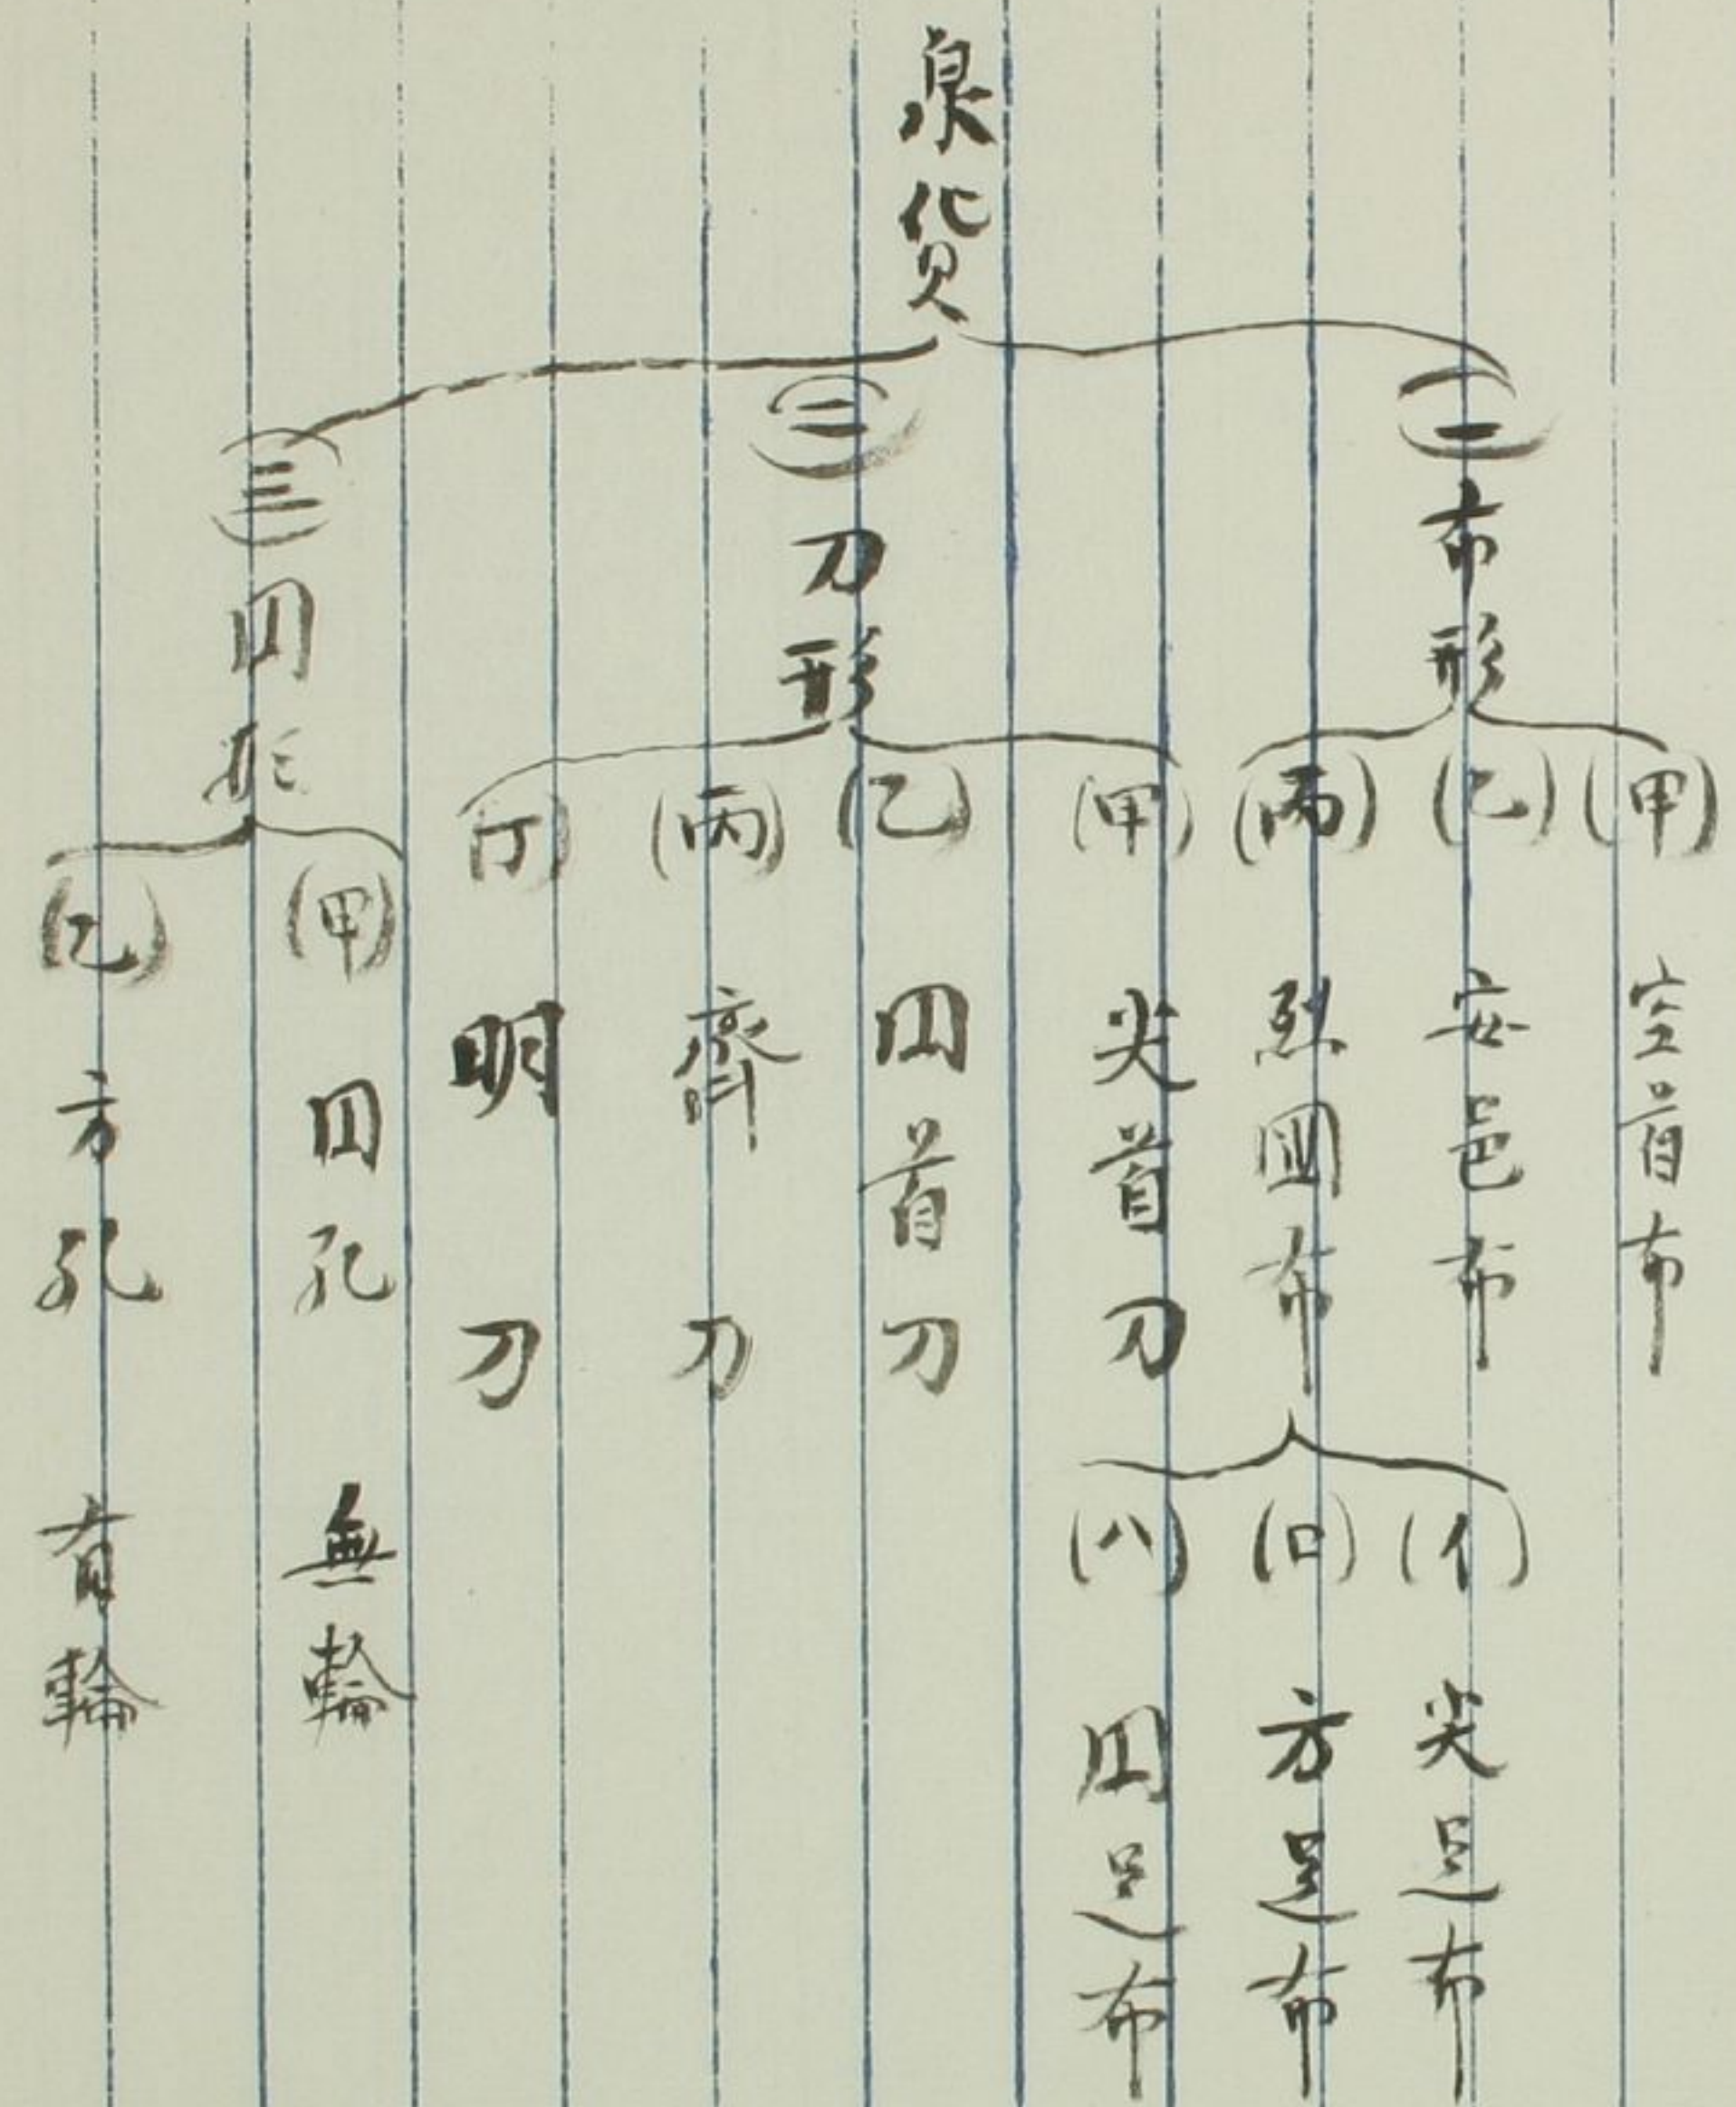 泉貨
(一)布形
(甲)空首布
(乙)安邑布
(丙)列國布
(イ)尖足布
(ロ)方足布
(ハ)円足布
(二)刀形
(甲)尖首刀
(乙)円首刀
(丙)齊刀
(丁)明刀
(三)円形
(甲)円孔 無輪
(乙)方孔 有輪